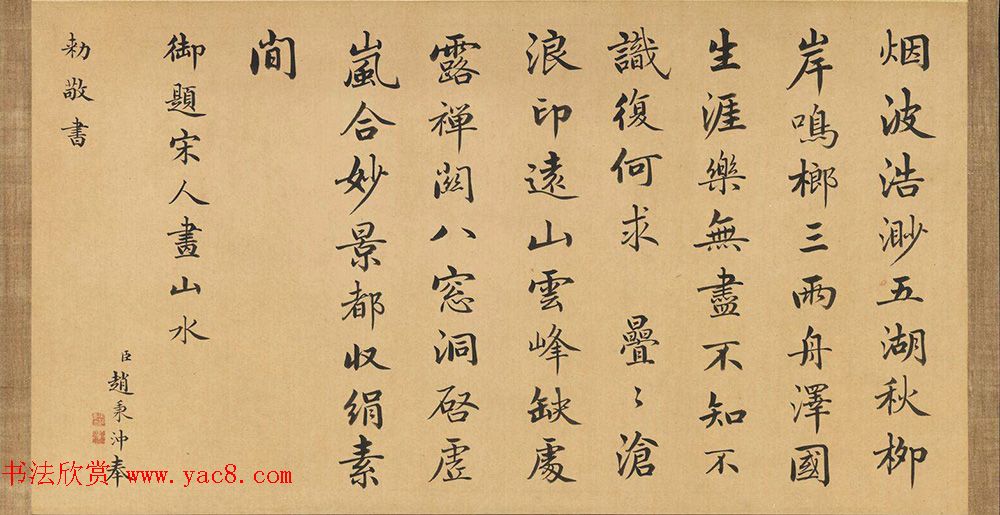 烟波浩渺五湖秋柳
岸鳴榔三兩舟澤國
生涯樂無盡不知不
識復何求 疊〻滄
浪印遠山雲峰缺處
露禪關八窓洞啓虛
嵐合妙景都收絹素
間
御題宋人畫山水
臣趙秉沖奉
勑敬書
书法欣赏 www.yac8.com